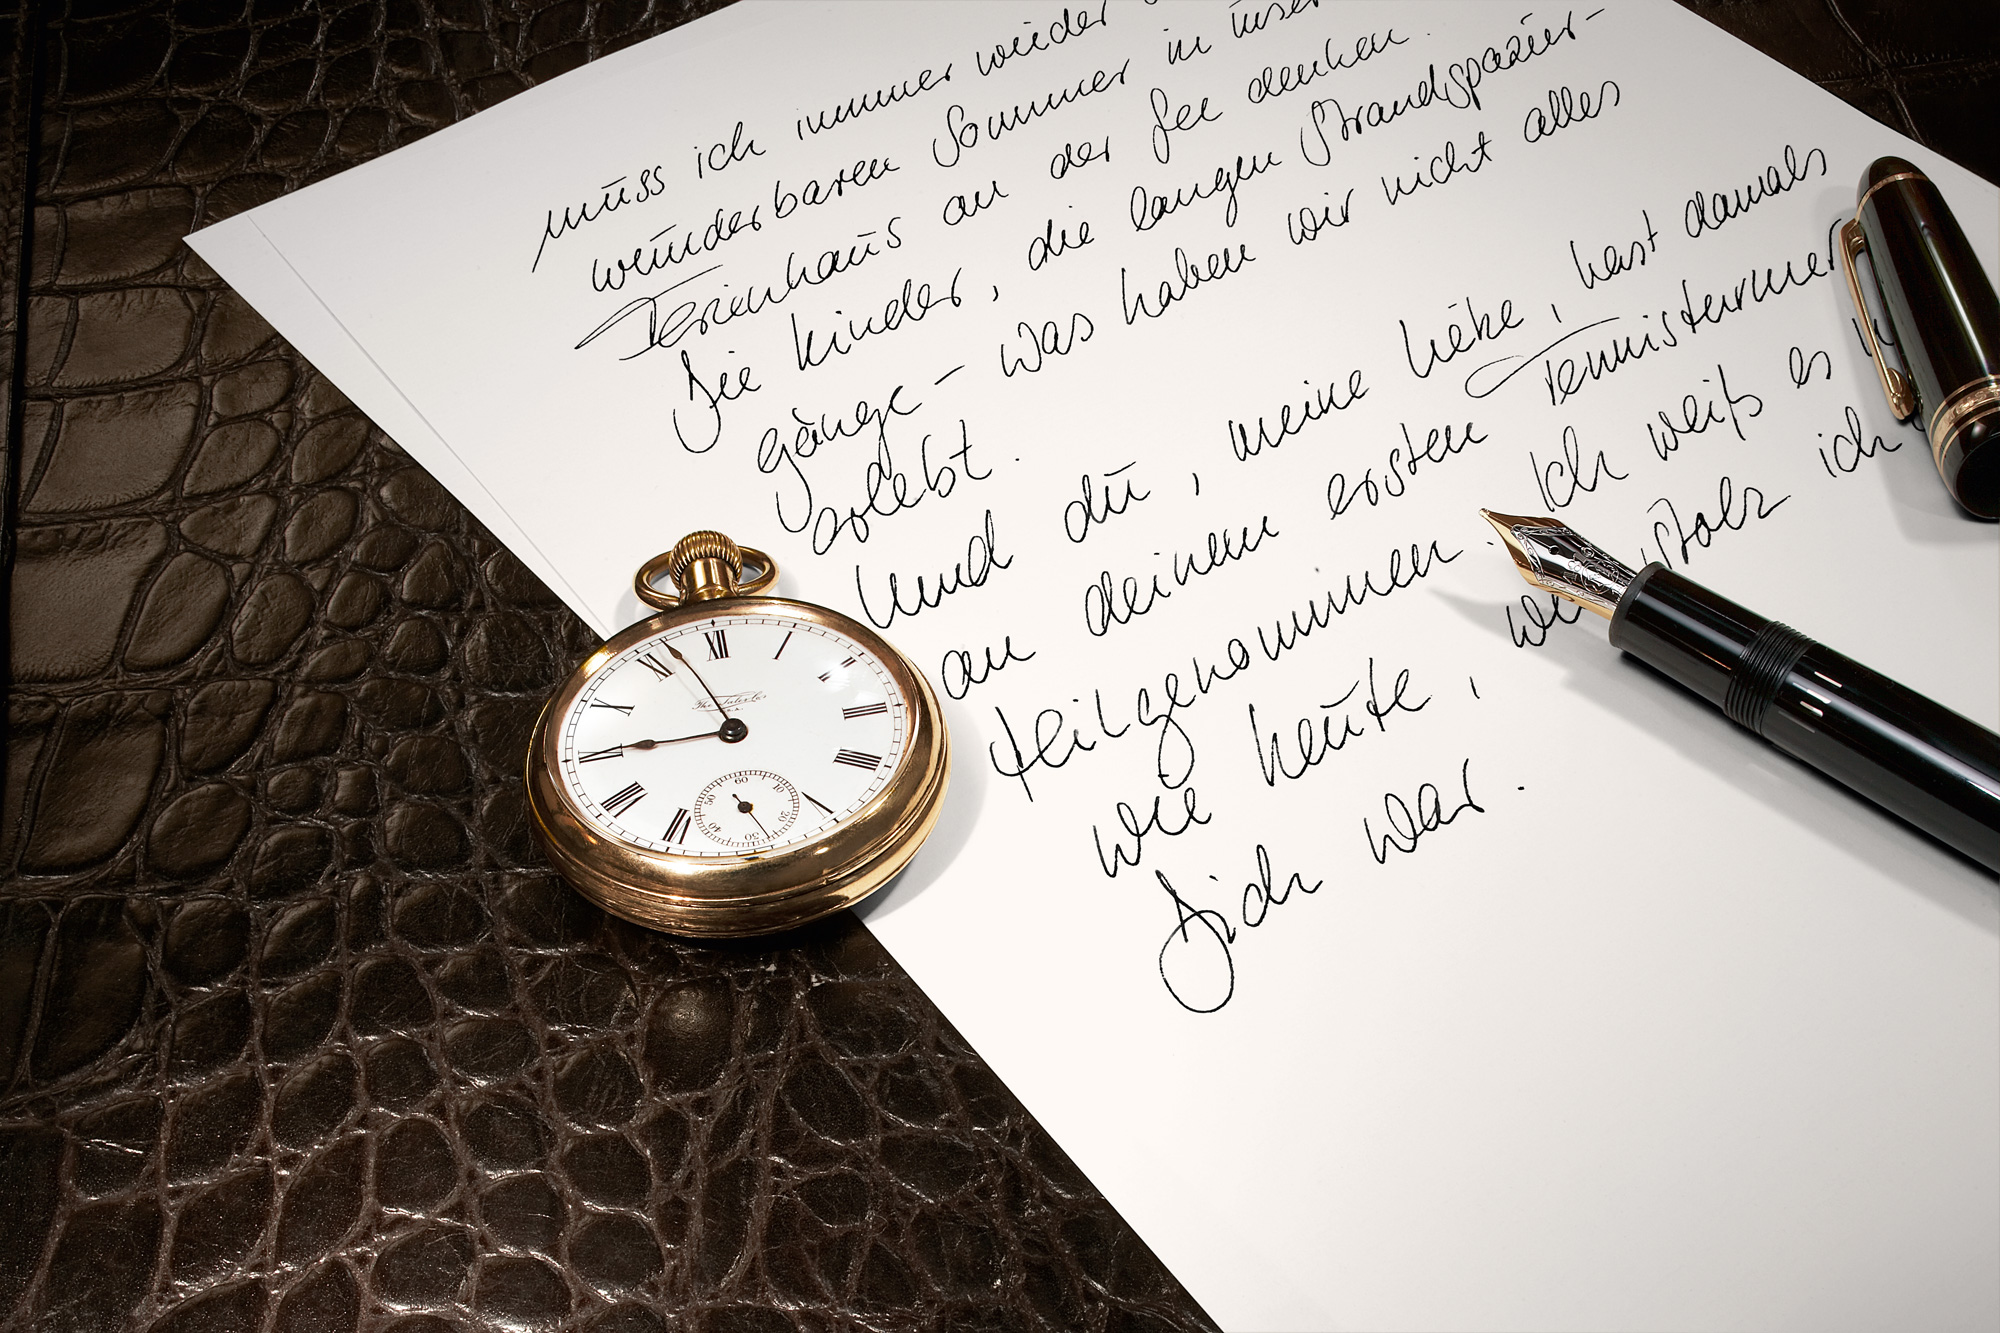 muss ich immer wieder
wunderbaren Sommer in unser
Ferienhaus an der See denken.
Die Kinder, die langen Strandspazier-
gänge - was haben wir nicht alles
erlebt.
Und du, meine liebe, hast damals
an deinem ersten Tennisturnier
teilgenommen. Ich weiß es
wie heute, stolz ich
Dich war.
XII
I
II
III
IIII
V
VII
VIII
IX
X
XI
60
10
30
40
50